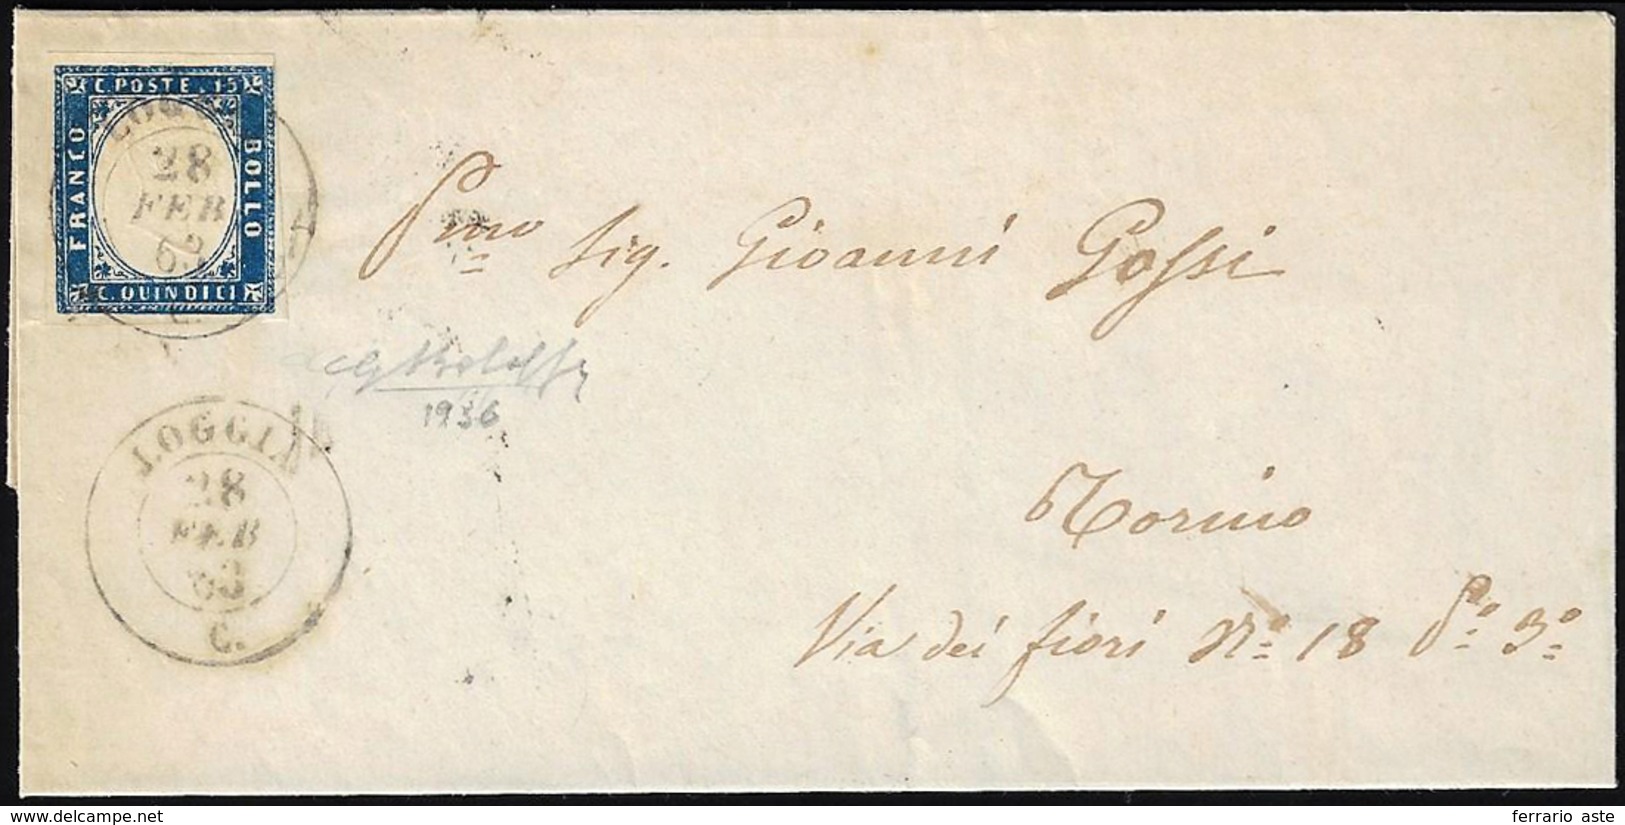 C. POSTE . 15
FRANCO
BOLLO
C. QUINDICI
28
FEB
63
C.
Pmo Sig. Gioanni Gossi
1936
LOGGIA
28
FEB
63
C.
Torino
Via dei fiori No. 18 Po. 3o.
www.delcampe.net
ferrario aste